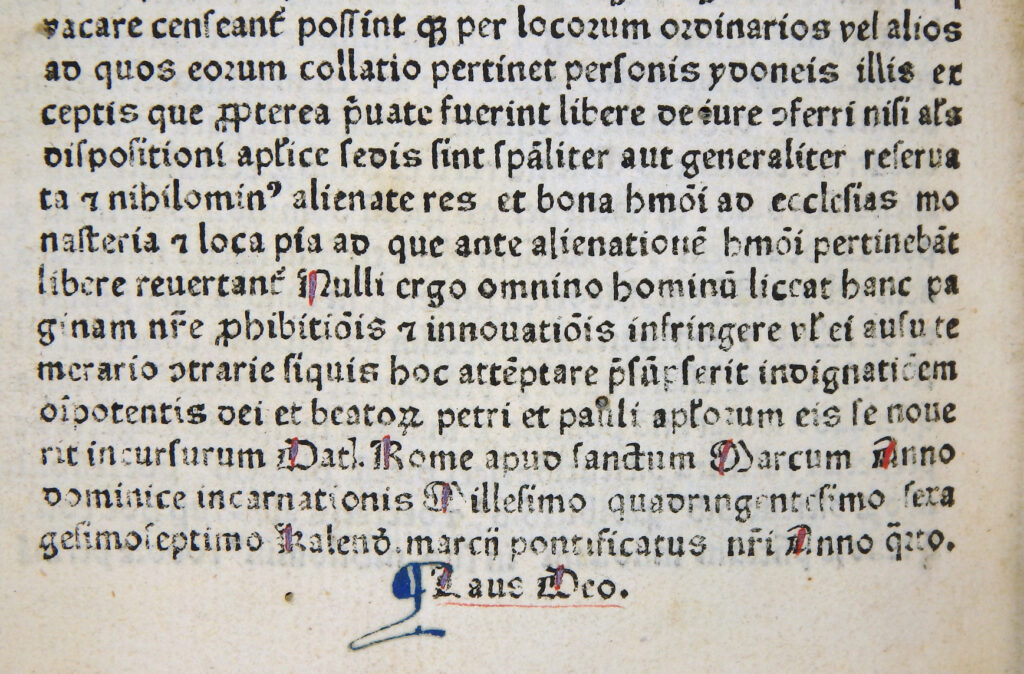 vacare censeant᷑ possint qꝫ per locorum ordinarios vel alios
ad quos eorum collatio pertinet personis ydoneis illis ex
ceptis que ꝓpterea p̄uate fuerint libere de iure ɔferri nisi al̓s
dispositioni apl̓ice sedis sint sp̄aliter aut generaliter reserua
ta ⁊ nihilominꝰ alienate res et bona hmōi ad ecclesias mo
nasteria ⁊ loca pia ad que ante alienationē hmōi pertinebāt
libere reuertant᷑ Nulli ergo omnino hominū liceat hanc pa
ginam nr̄e ꝓhibitiōis ⁊ innouatiōis infringere vl̓ ei ausu te
merario ɔtrarie siquis hoc attēptare p̄sūpserit indignatiōem
oīpotentis dei et beatoꝝ petri et pauli apl̓orum eis se noue
rit incursurum Datl. Rome apud sanctum Marcum Anno
dominice incarnationis Millesimo quadringentesimo sexa
gesimoseptimo Kalend̄. marcij pontificatus nr̄i Anno q̄rto.
Laus Deo.